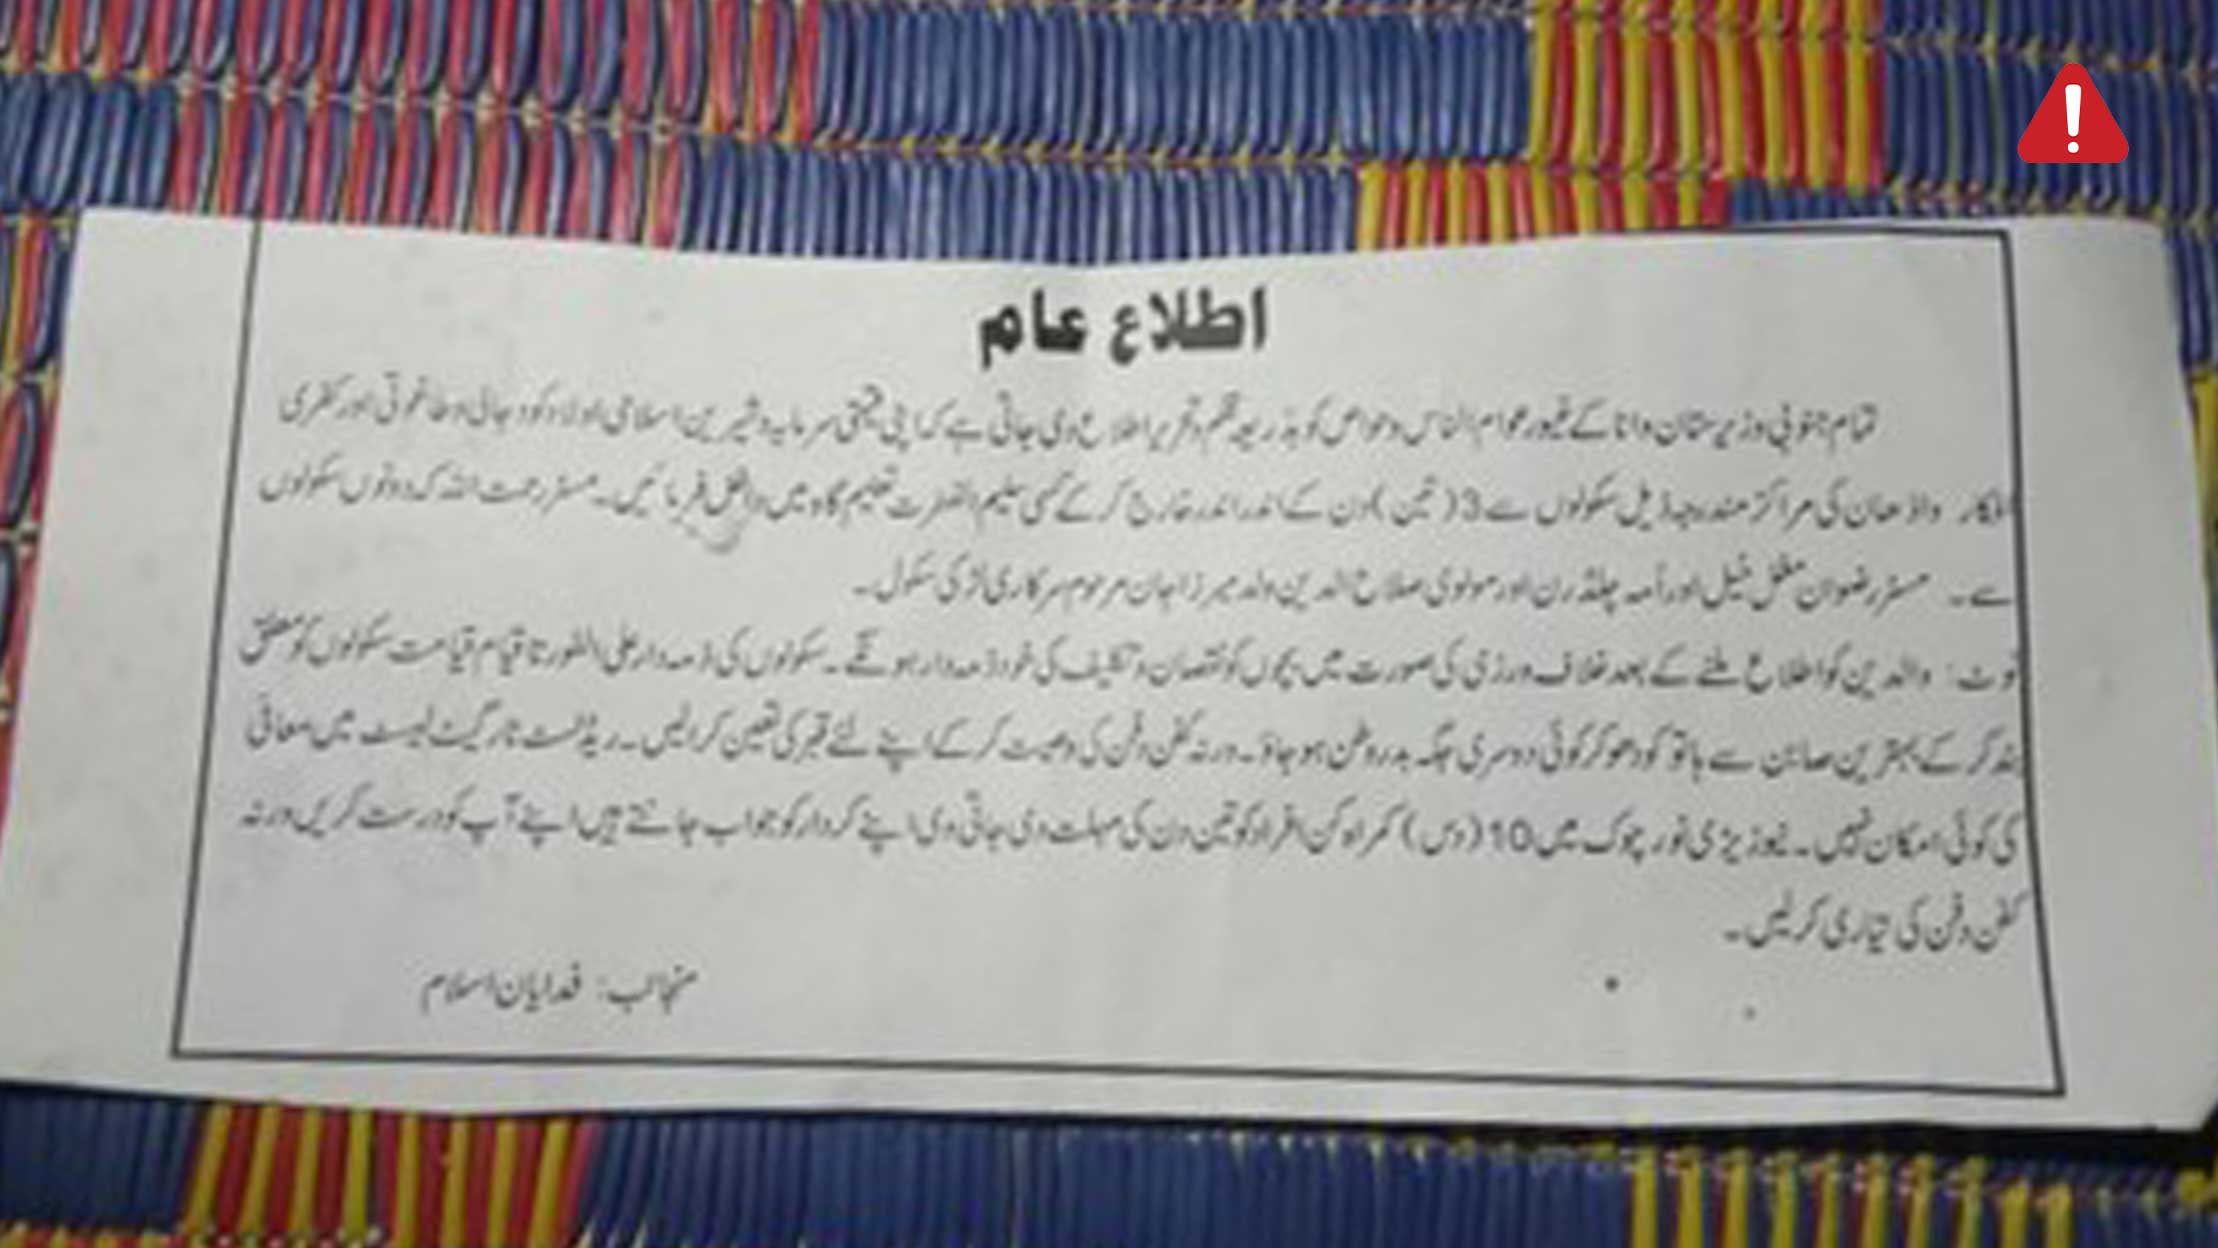 اطلاع عام
تمام جنوبی وزیرستان وانا کے غیور عوام الناس وخواص کو بذریعہ قلم وقریر اطلاع دی جاتی ہے کہ اپنی قیمتی سرمایہ وشیرین اسلامی اولاد کو دجالی وطاغوتی اور کفری
افکار واذھان کی مراکز مندرجہ ذیل سکولوں سے 3 (تین) دن کے اندر اندر خارج کر کے کسی سلیم الفطرت تعلیم گاہ میں داخل فرمائیں۔ مسٹر رحمت اللہ کہ دونوں سکولوں
سے۔ مسٹر رضوان مغل خیل اور اُمہ چلڈرن اور مولوی صلاح الدین ولد میرزا جان مرحوم سرکاری لڑکی سکول۔
نوٹ: والدین کو اطلاع ملنے کے بعد خلاف ورزی کی صورت میں بچوں کو نقصان وتکلیف کی خود ذمہ دار ہونگے۔ سکولوں کی ذمہ دار علی الفور تا قیام قیامت سکولوں کو معطل
بند کر کے بہترین صابن سے ہاتو کو دھو کر کوئی دوسری جگہ بدر وطن ہو جاؤ۔ ورنہ کفن دفن کی وصیت کر کے اپنے لئے قبر کی تعین کرالیں۔ ریڈلسٹ ٹارگیٹ لیسٹ میں معافی
کی کوئی امکان نہیں۔ نیوز بڑی نور چوک میں 10 (دس) گمراہ کن افراد کو تین دن کی مہلت دی جاتی دی اپنے کردار کو جواب جانتے ہیں اپنے آپ کو درست کریں ورنہ
کفن دفن کی تیاری کرلیں۔
منجانب: فدایان اسلام